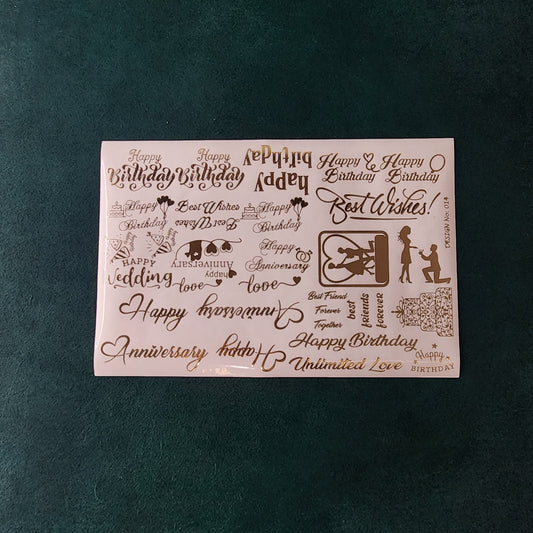 Happy
Birthday
Happy
Birthday
happy
birthday
Happy
Birthday
Happy
Birthday
Happy
Birthday
Best Wishes
Best Wishes
Happy
Birthday
Best Wishes!
DESIGN No: 014
HAPPY
Wedding
happy
Anniversary
Happy
Anniversary
love
love
Happy Anniversary
Best Friend
Forever
Together
best
friends
forever
Anniversary Happy
Happy Birthday
Unlimited Love
Happy
BIRTHDAY